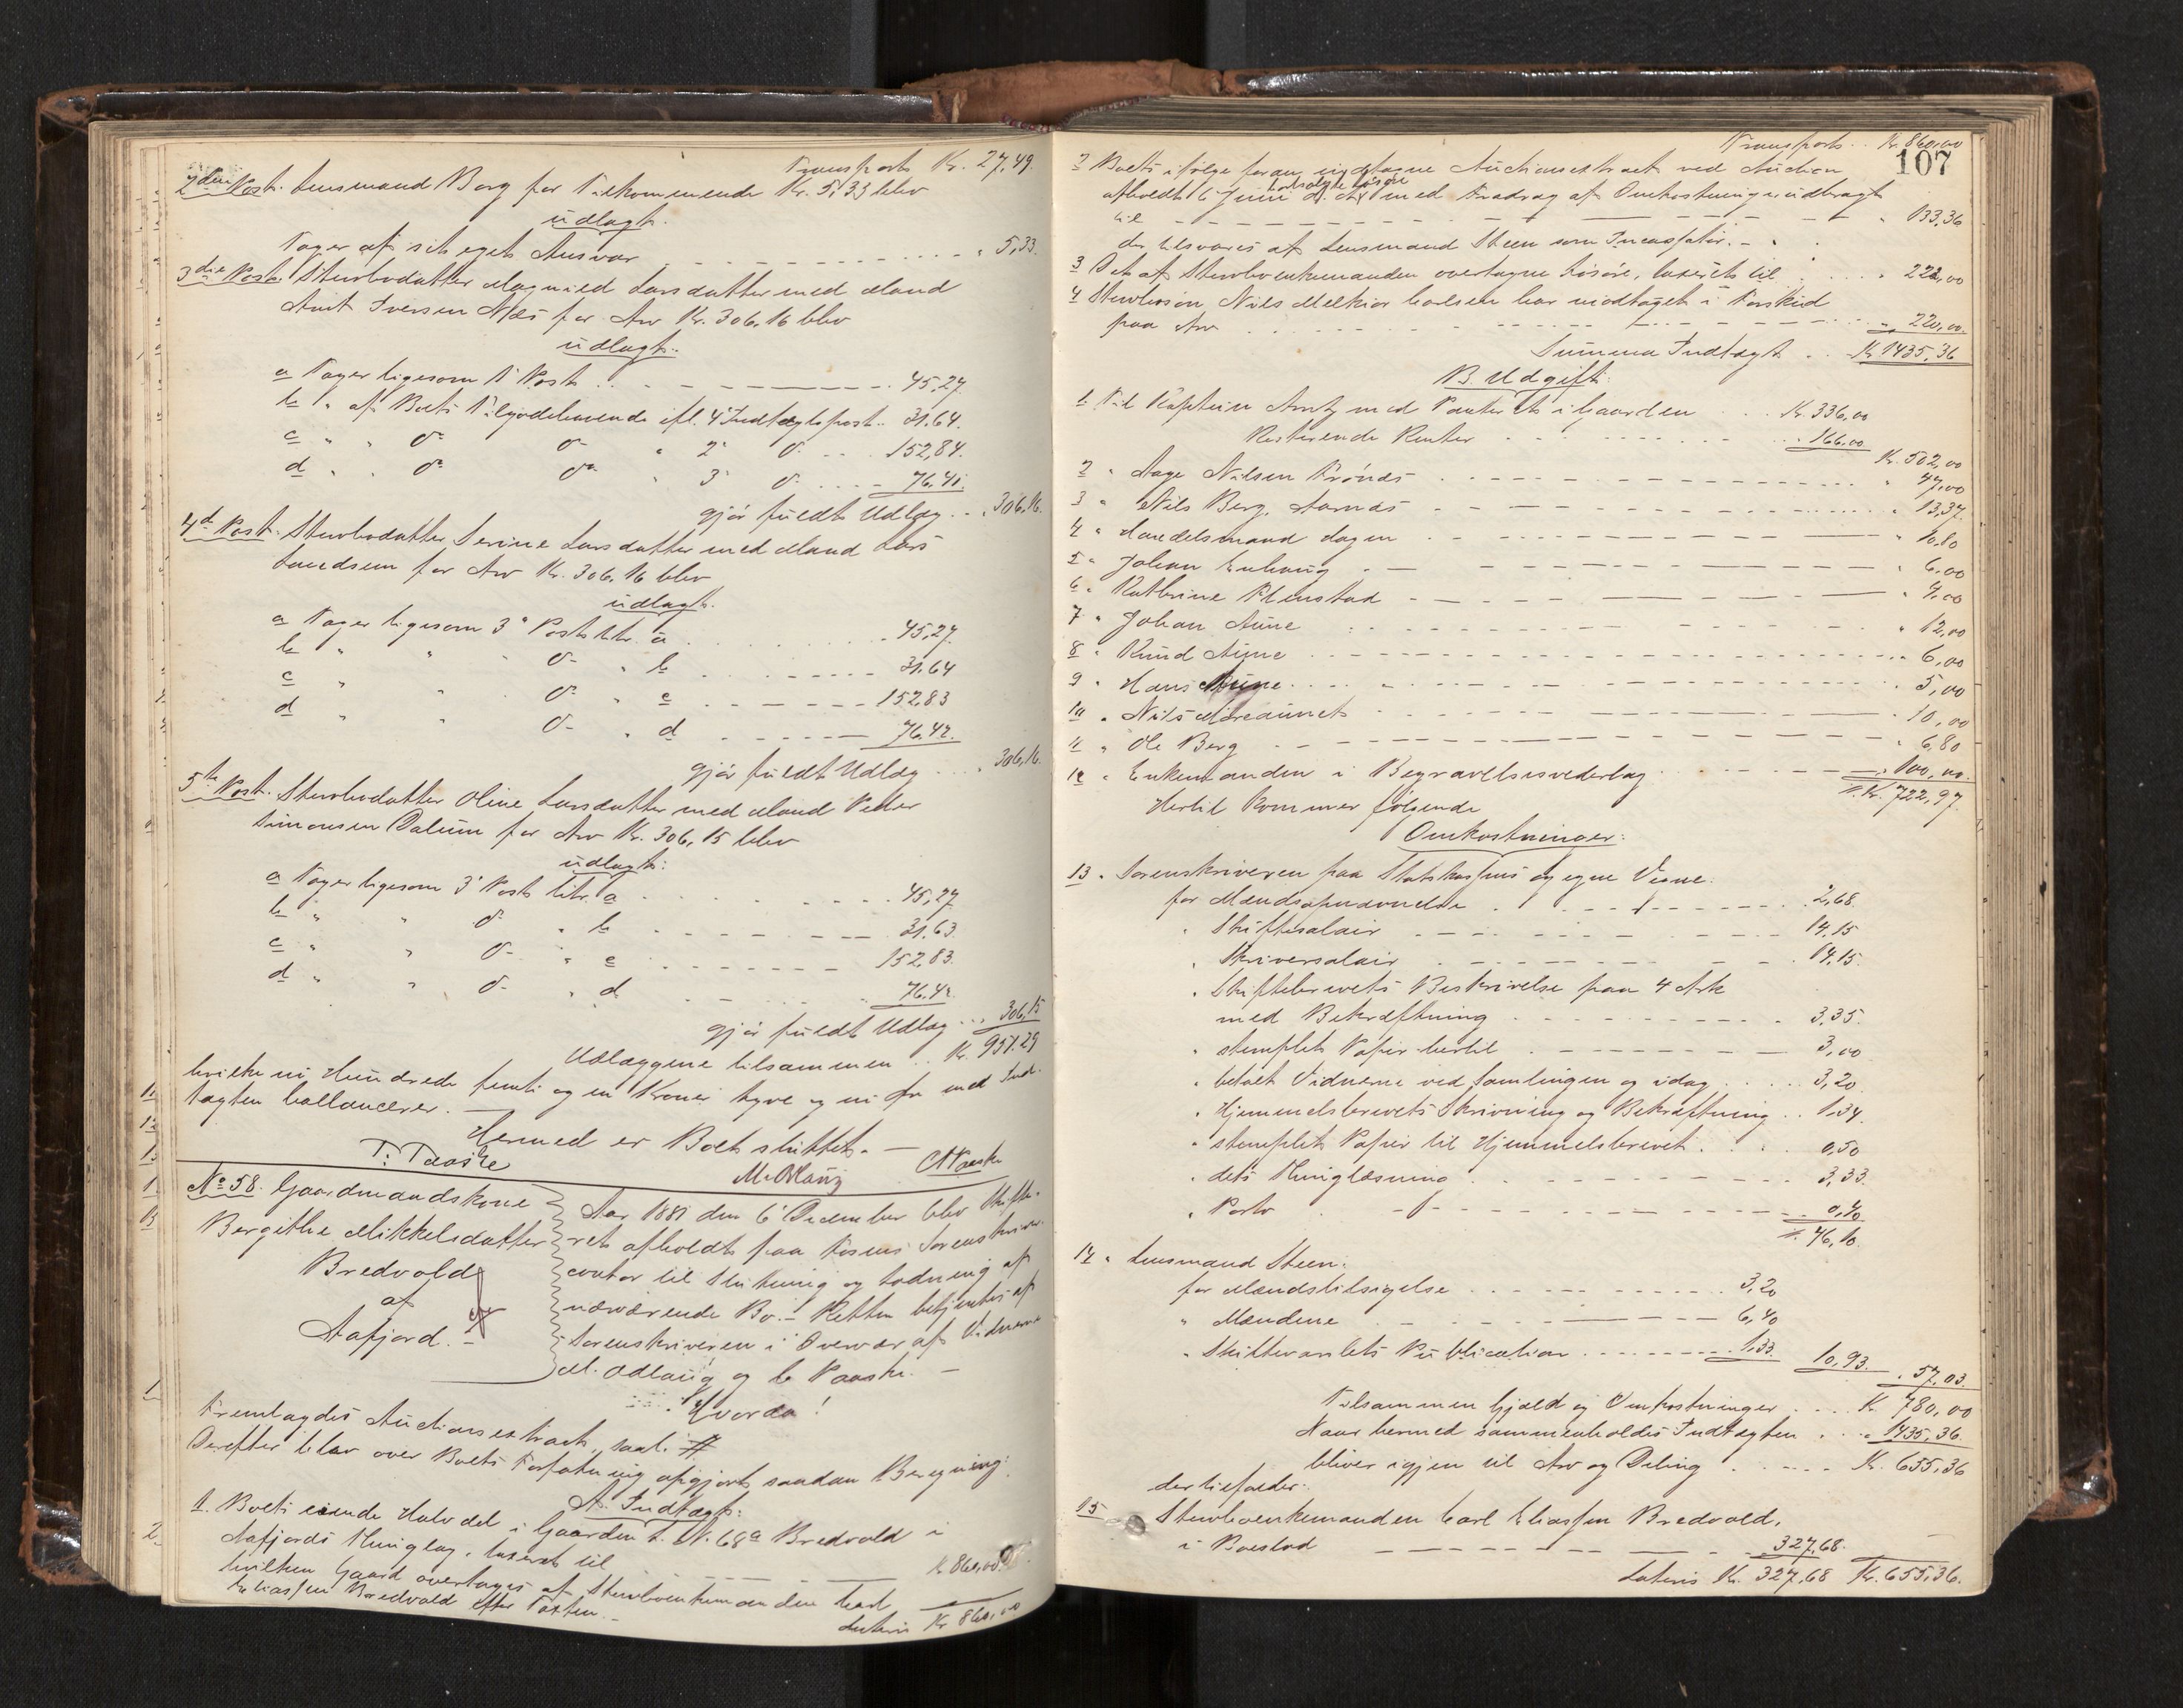 Transport Kr. 27,49.
2den Post. Lensmand Borg for Tilkommende Kr. 5,33 blev
udlagt.
Tager af sit eget Ansvar „ 5,33.
3die Post. Stervbodatter Magnild Larsdatter med Mand
Arnt Iversen Næs for Arv Kr. 306,16 blev
udlagt.
a Tager ligesom 1' Post 45,27.
b " af Boets Tilgodehavende ifl. 4' Indtægtspost 31.64.
c " " do do " 2' do 152,84.
d " " do do " 3' do 76.41.
gjör fuldt Udlæg „ 306,16.
4de Post. Stervbodatter Serine Larsdatter med Mand Lars
Larsen for Arv Kr. 306,16 blev
udlagt.
a Tager ligesom 3' Post litr. a 45,27.
b " " do " b 31.64
c " " do " c 152,83
d " " do " d 76.42.
gjör fuldt Udlæg „ 306,16.
5te Post. Stervbodatter Oline Larsdatter med Mand Peder
Simonsen Dalum for Arv Kr. 306,15 blev
udlagt:
a Tager ligesom 3' Post litr. a 45,27
b " " do " b 31.63
c " " do " c 152,83.
d " " do " d 76.42
gjör fuldt Udlæg „ 306,15
Udlæggene tilsammen Kr. 951.29
hvilke ni Hundrede femti og en Kroner tyve og ni Øre med Ind-
tægten ballancerer. —
Hermed er Boet sluttet. —
T. Paaske
M. Ødlaug C. Paaske
No 58. Gaardmandskone
Bergithe Mikkelsdatter
Bredvold
af
Aafjord. —
Aar 1881 den 6' December blev Skifte-
ret afholdt paa Fosens Sorenskriver-
contor til Slutning og Lodning af
nærværende Bo. — Retten betjentes af
Sorenskriveren i Overvær af Vidnerne
M. Ødlaug og C. Paaske. —
Hvorda!
Fremlagdes Auctionsextract, saal. #
Derefter blev over Boets Forfatning afgjort saadan Beregning:
A. Indtægt:
1. Boets eiende Halvdel i Gaarden L. N. 68a Bredvold i
Aafjords Thinglag, taxeret til Kr. 860,00
hvilken Gaard overtages af Stervboenkemanden Carl
Eliassen Bredvold efter Taxten. —
Lateris Kr 860,00
107
Transport Kr. 860,00
2 Boets ifølge foran Auctionsextract ved Auction
afholdt 6 Juni d. A. solgte Løsöre med Fradrag af Omkostninger udbragt
til „ 133,36
der tilsvares af Lensmand Steen som Incassator. —
3 Det af Stervboenkemanden overtagne Løsöre, taxeret til „ 222,00
4 Stervbosön Nils Melkior Carlsen har modtaget i Forskud
paa Arv „ 220,00.
Summa Indtægt Kr 1435,36
B. Udgift.
1 Til Kaptein Arntz med Panteret i Gaarden Kr. 336,00
Resterende Renter „ 166,00
Kr. 502,00
2 " Aage Nilsen Krönæs „ 47,00
3 " Nils Berg, Aarnæs „ 13,37.
4 " Handelsmand Hagen „ 10.80
5 " Johan „ 6,00
6 " Kathrine „ 4,00
7 " Johan Aune „ 12,00
8 " Knud Aune „ 6,00
9 " Hans Aune „ 5,00
10 " Nils Moreaunet „ 10,00
11 " Ole Berg „ 6,80
12 " Enkemanden i Begravelsesvederlag „ 100,00.
Kr. 722,97.
Hertil kommer følgende
Omkostninger:
13 " Sorenskriveren paa Statskassens og egne Vegne:
for Mændsopnævnelse 2,68
" Skiftesalair 14,15
" Skriversalair 14,15.
" Skiftebrevets Beskrivelse paa 4 Ark
med Bekræftning 3,35.
" stemplet Papir hertil 3,00
" betalt Vidnerne ved Samlingen og idag 3,20.
" Hjemmelsbrevets Skrivning og Bekræftning 1.34
" stemplet Papir til Hjemmelsbrevet 0,50
" dets Thinglæsning 3,33.
" Porto 0,40
46,10.
14 " Lensmand Steen:
for Mændstilsigelse 3,20
" Mændene 6,40
" Skiftevarslets Publication 1.33. 10,93. „ 57,03.
Tilsammen Gjæld og Omkostninger Kr. 780,00
Naar hermed sammenholdes Indtægten „ 1435,36.
bliver igjen til Arv og Deling Kr. 655,36
der tilfalder:
15 Stervboenkemanden Carl Eliassen Bredvold,
i Boeslod 327,68.
Lateris Kr. 327,68 Kr. 655,36.